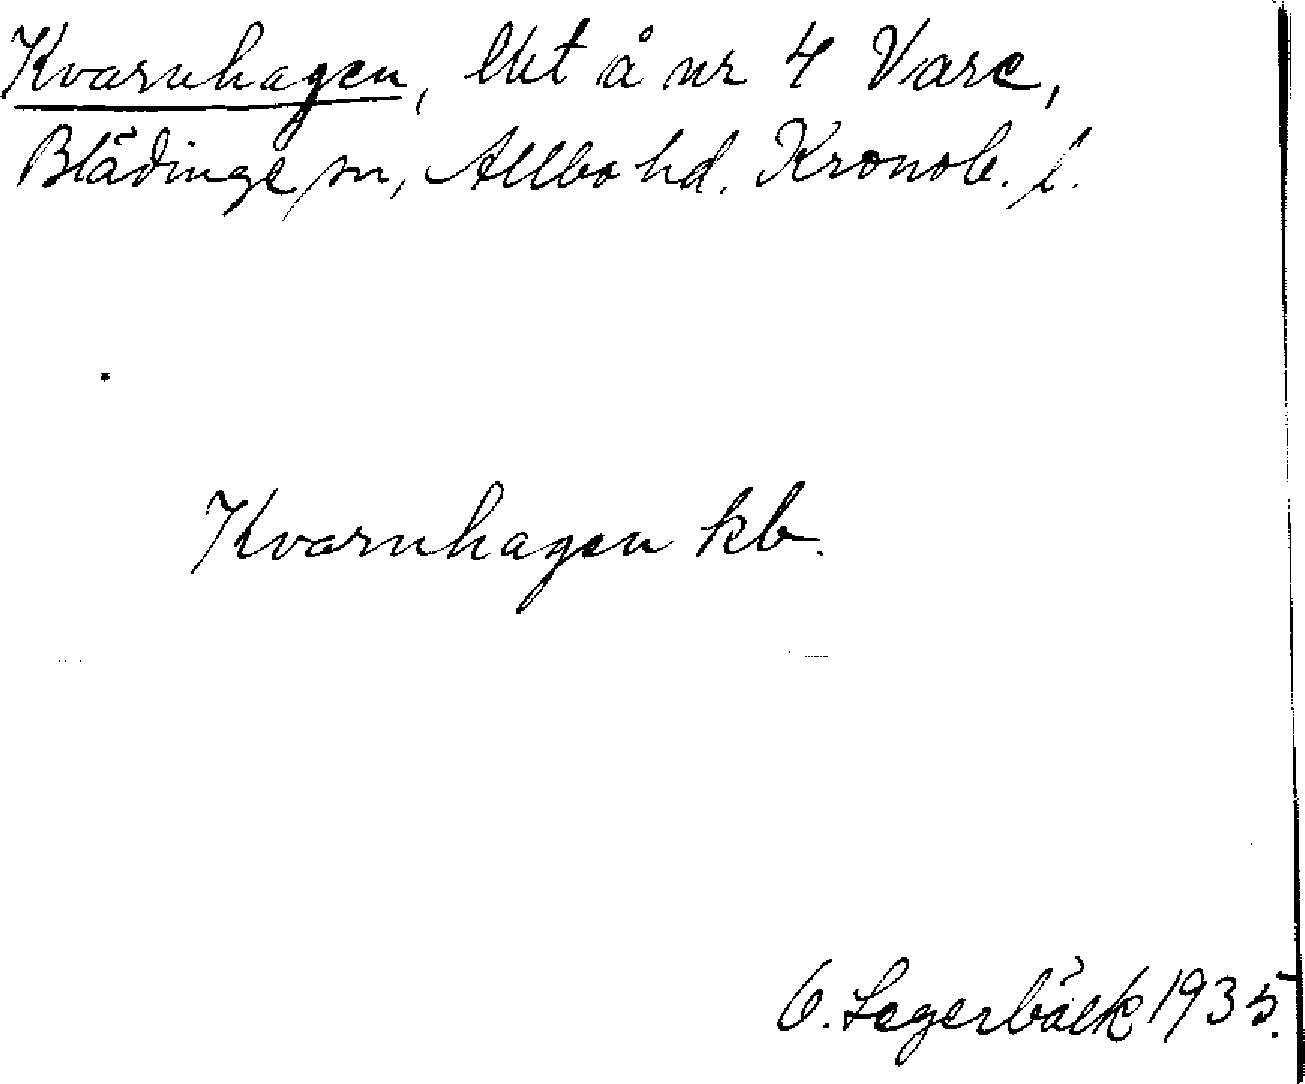 Kvarnhagen, lht å nr 4 Vare,
Blädinge sn, Allbo hd. Kronob. l.
Kvarnhagen kb.
O. Lagerbäck 1935.